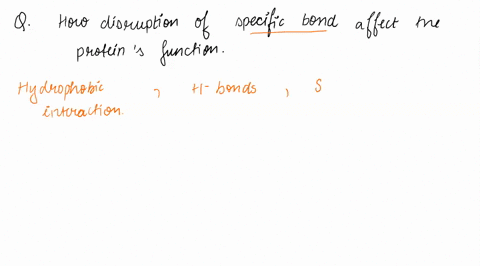 Q. How disruption of specific bond affect the
protein's function.
Hydrophobic , H-bonds , S
interaction.